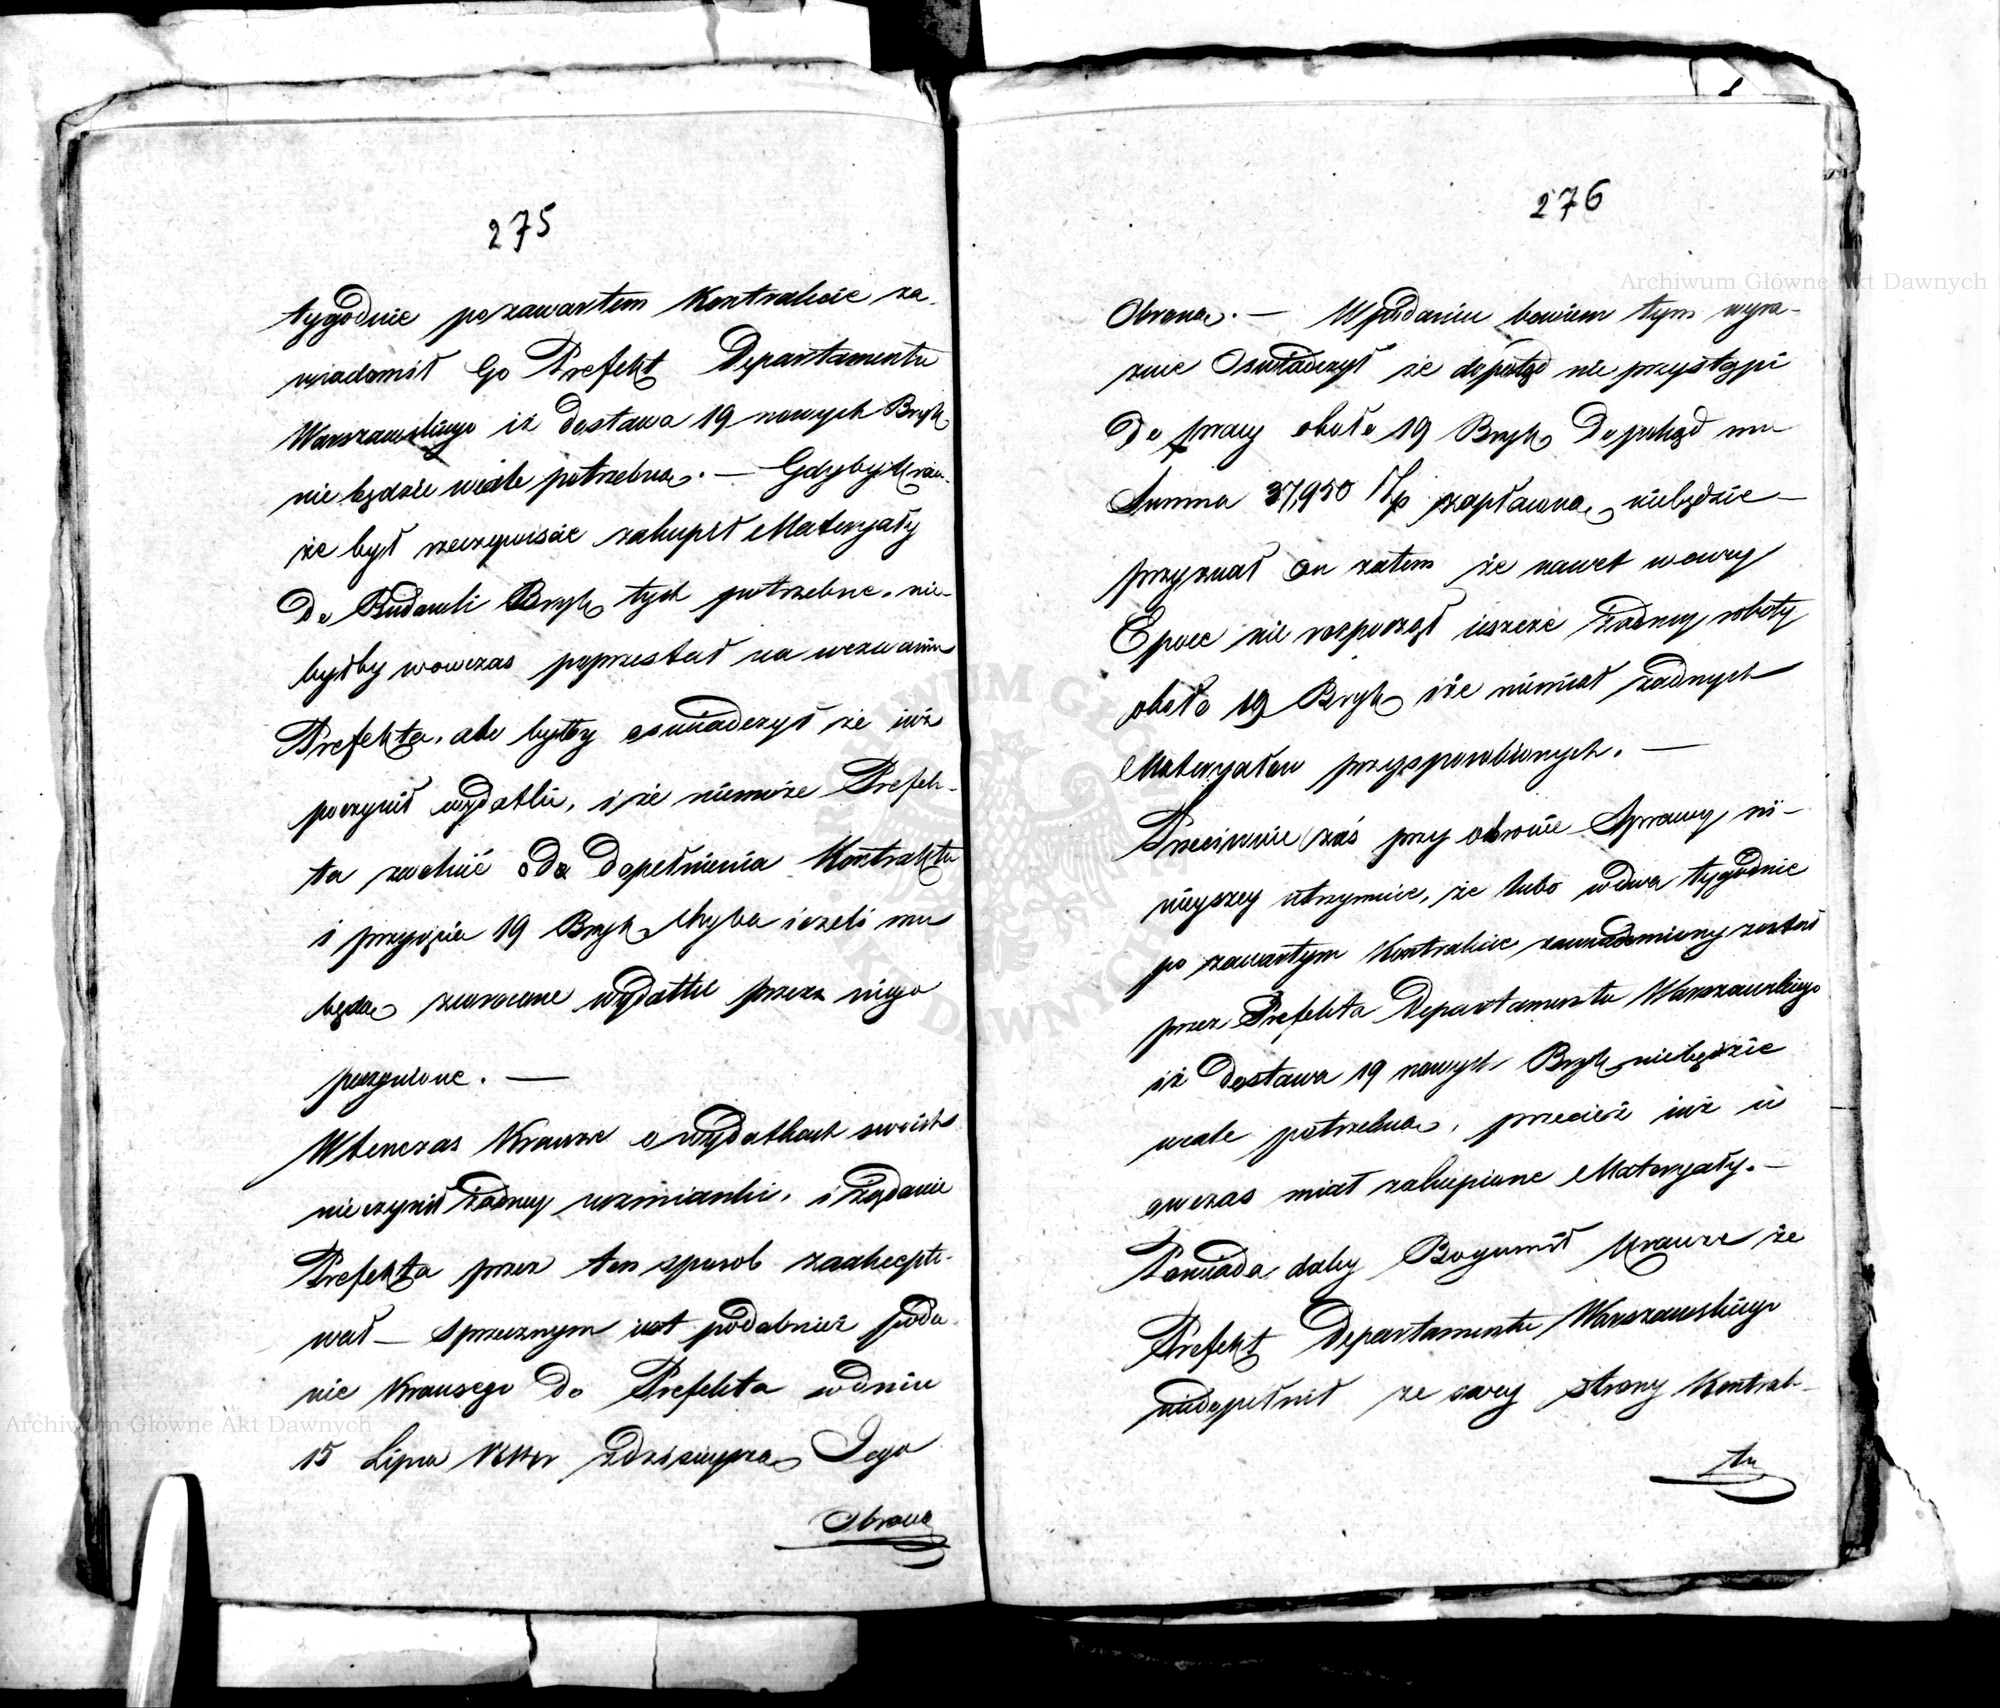 275
tygodnie po zawartem Kontrakcie za-
wiadomił Go Prefekt Departamentu
Warszawskiego iż dostawa 19 nowych Bryk
nie będzie wcale potrzebna. — Gdyby Krau-
ze był rzeczywiscie zakupił Materyały
do Budowli Bryk tych potrzebne, nie-
byłby wowczas poprzestał na wezwaniu
Prefekta, ale byłby oswiadczył że iuż
poczynił wydatki, i że niemoże Prefek-
ta zwolnić od dopełnienia Kontraktu
i przyięcia 19 Bryk chyba ieżeli mu
będą zwrocone wydatki przez niego
poczynione. —
Wtenczas Krauze o wydatkach swoich
nie czynił żadney wzmianki, i żądanie
Prefekta przez ten sposob zaakcepto-
wał — sprzecznym iest podobnież poda-
nie Krausego do Prefekta w dniu
15 Lipca z dzisieyszą Jego
Obroną
276
Obroną. — W podaniu bowiem tym wyra-
znie Oswiadczył że dopotąd nie przystąpi
do pracy około 19 Bryk dopokąd mu
Summa 37,950 Złp zapłaconą niebędzie —
przyznał on zatem że nawet w owey
Epoce nie rozpoczął ieszcze żadney roboty
około 19 Bryk i że niemiał żadnych
Materyałow przysposobionych. —
Przeciwnie zaś przy obronie Sprawy ni-
nieyszey utrzymuie, że lubo w dwa tygodnie
po zawartym Kontrakcie zawiadomiony został
przez Prefekta Departamentu Warszawskiego
iż dostawa 19 nowych Bryk niebędzie
wcale potrzebną, przecież iuż w
owczas miał zakupione Materyały. —
Powiada daley Bogumił Krauze że
Prefekt Departamentu Warszawskiego
niedopełnił ze swey strony Kontrak-
tu
Archiwum Główne Akt Dawnych
Archiwum Główne Akt Dawnych
ARCHIWUM GŁÓWNE AKT DAWNYCH